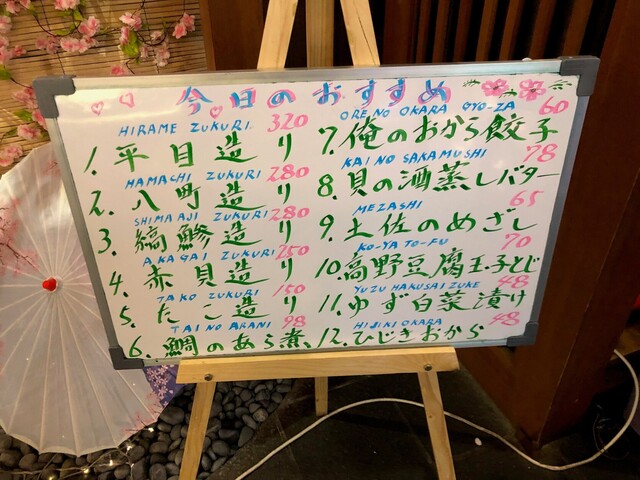 今日のおすすめ
HIRAME ZUKURI 320
1. 平目造り
HAMACHI ZUKURI 280
2. 八町造り
SHIMAAJI ZUKURI 280
3. 縞鯵造り
AKAGAI ZUKURI 250
4. 赤貝造り
TAKO ZUKURI 150
5. たこ造り
TAI NO ARANI 98
6. 鯛のあら煮
ORE NO OKARA GYO-ZA 60
7. 俺のおから餃子
KAI NO SAKAMUSHI 78
8. 貝の酒蒸しバター
MEZASHI 65
9. 土佐のめざし
KO-YA TO-FU 70
10. 高野豆腐玉子とじ
YUZU HAKUSAI ZUKE 48
11. ゆず白菜漬け
HIJIKI OKARA 48
12. ひじきおから